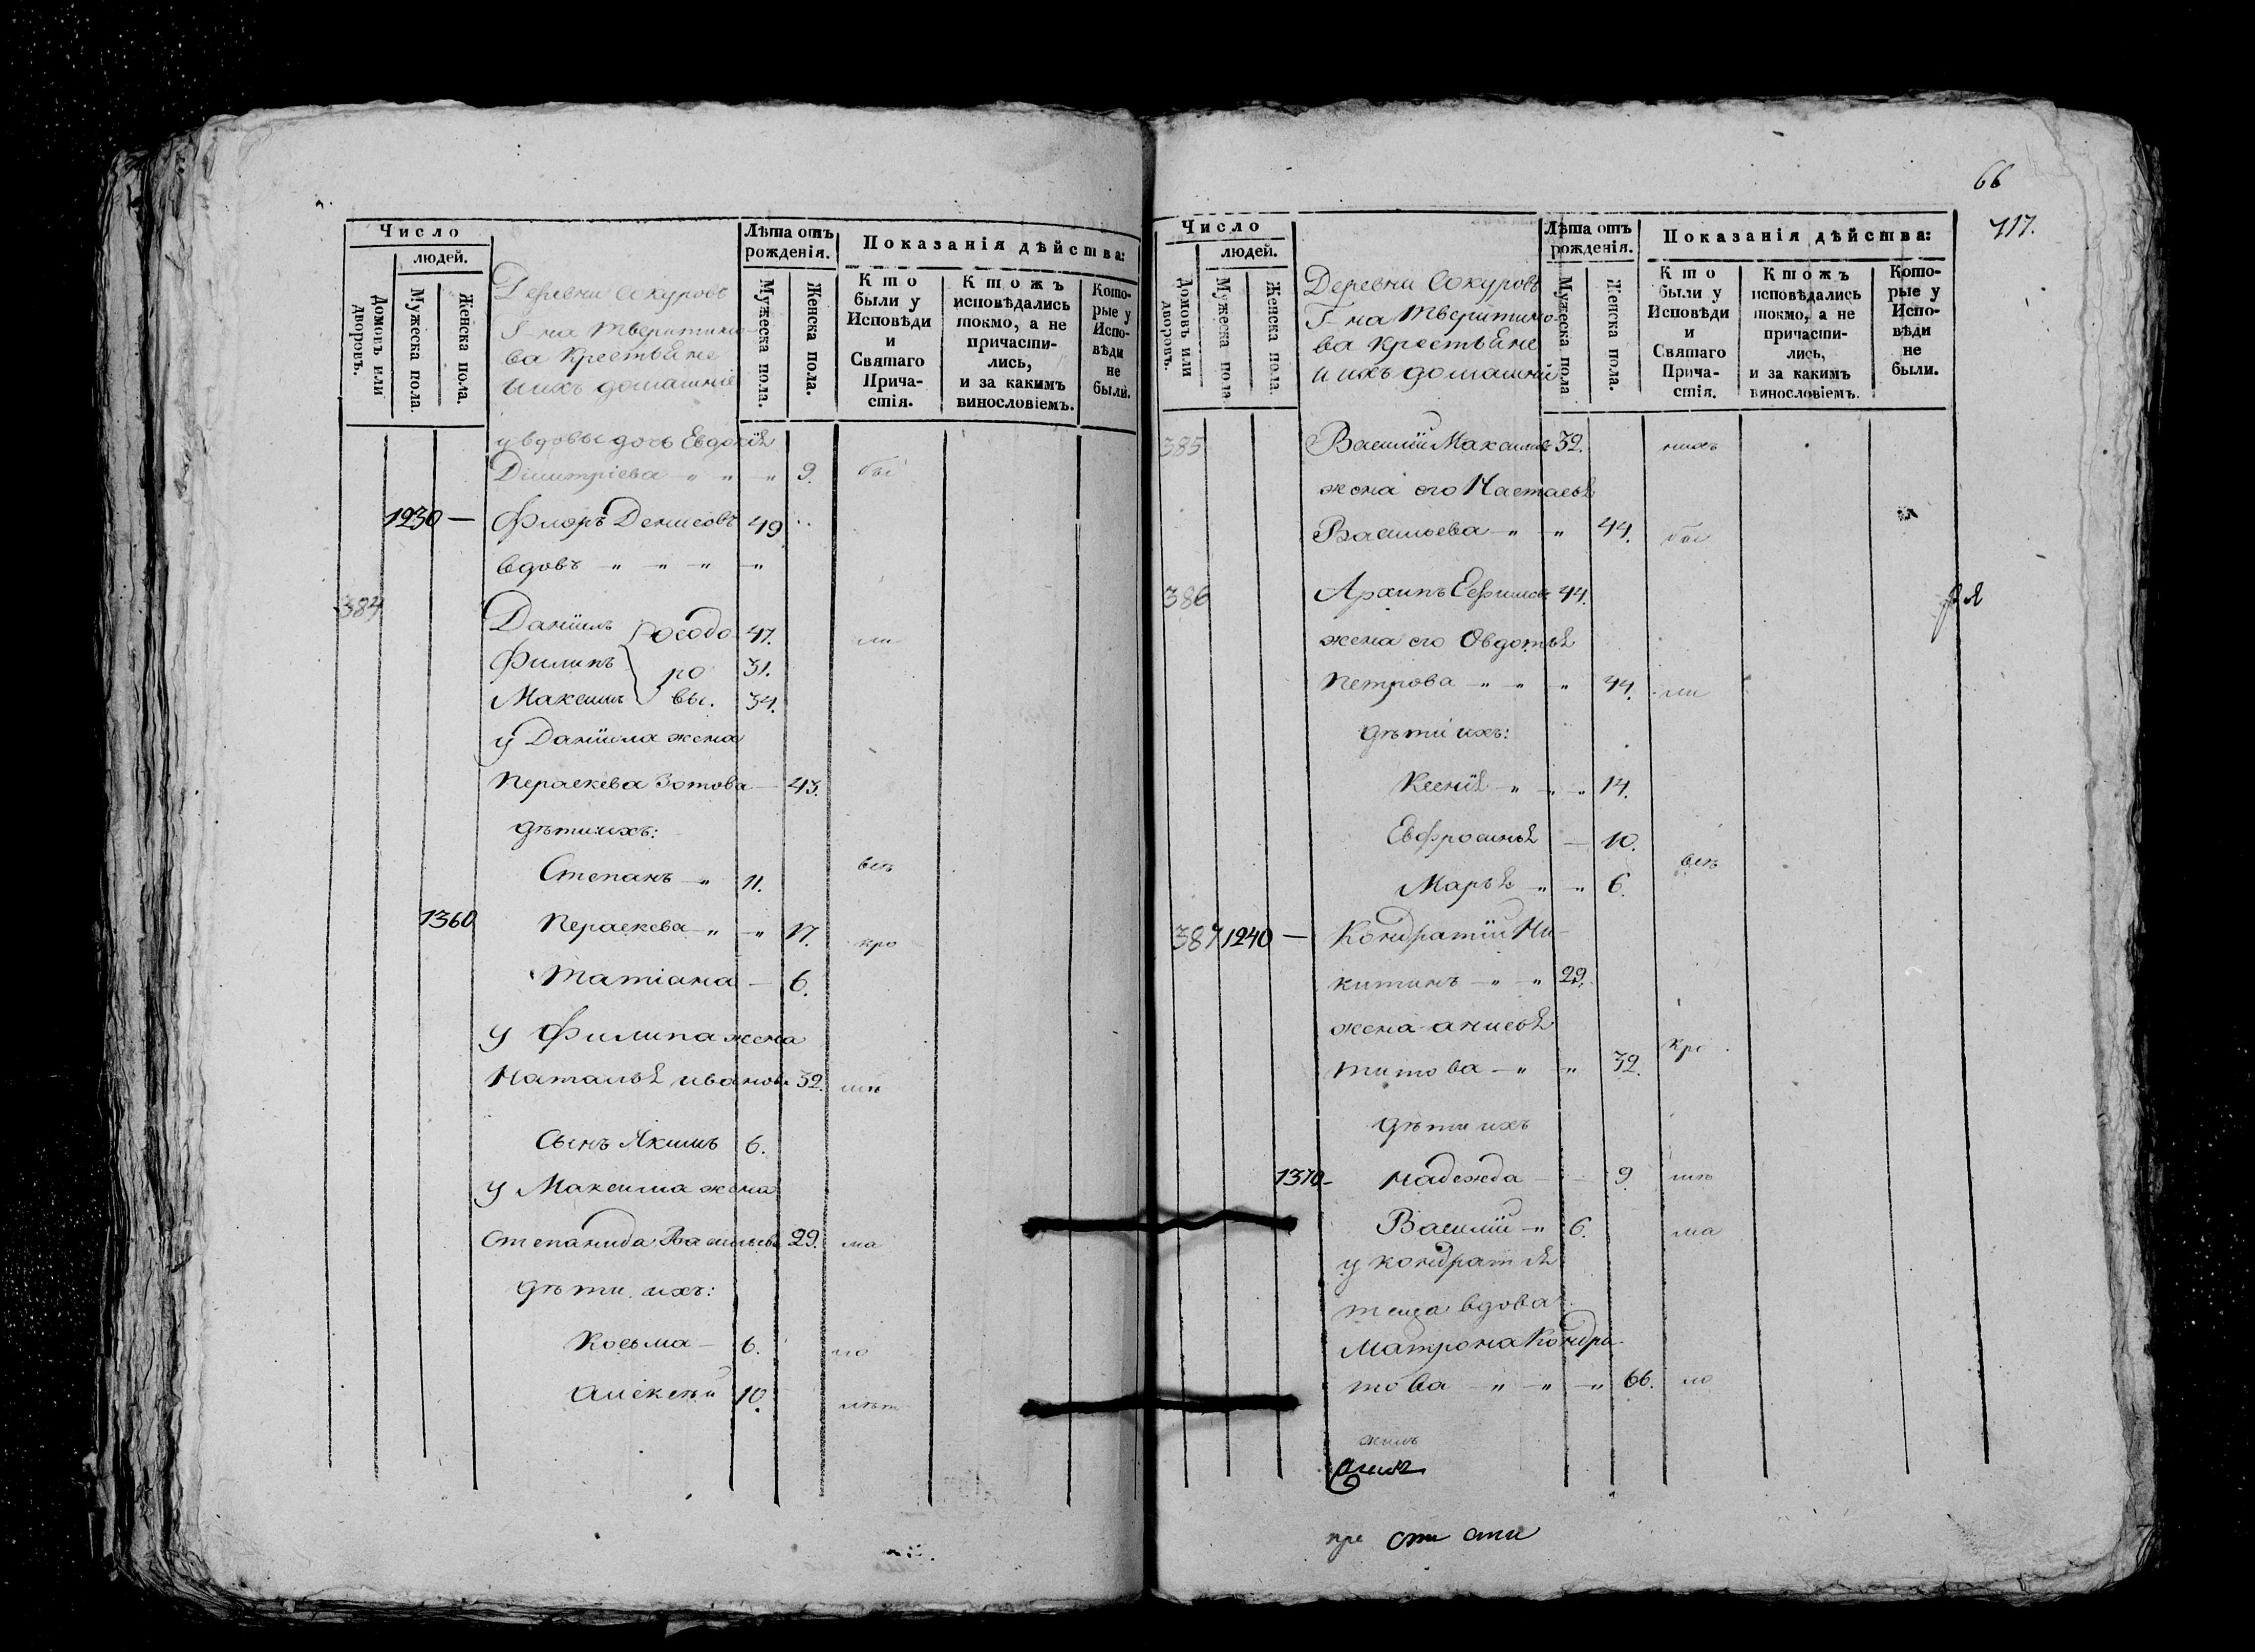 Число
людей.
Домовъ или дворовъ.
Мужеска пола.
Женска пола.
Деревни Сокуровъ
Г-на Тверитино-
ва крестьяне
и ихъ домашніе
Лѣта отъ рожденія.
Мужеска пола.
Женска пола.
Показанія дѣйства:
Кто были у Исповѣди и Святаго Прича-стія.
Ктожъ исповѣдались токмо, а не причасти-лись, и за какимъ винословіемъ.
Кото-рые у Испо-вѣди не были.
у вдовы дочь Евдокія
Димитріева - " - " - " 9. бы
1230 — Флоръ Денисовъ 49
вдовъ - " - " - " - "
384 Даніилъ 47. ли
Филипъ 31.
Максимъ 34.
особо
ро
вы.
у Даніила жена
Пераскева Зотова — 43.
дѣти ихъ:
Степанъ - " 11. всѣ
1360 Пераскева - " - " 17. кро
Татіана — 6.
у Филипа жена
Наталья Иванова 32. мѣ
Сынъ Якимъ 6.
у Максима жена
Степанида Васильева 29. ма
дѣти ихъ:
Косьма — 6. ло
Алексѣй 10. лѣт
66
717.
Число
людей.
Домовъ или дворовъ.
Мужеска пола
Женска пола.
Деревни Сокуровъ
Г-на Тверитино-
ва крестьяне
и ихъ домашній
Лѣта отъ рожденія.
Мужеска пола
Женска пола.
Показанія дѣйства:
Кто были у Исповѣди и Святаго Прича-стія.
Ктожъ исповѣдались токмо, а не причасти-лись, и за какимъ винословіемъ.
Кото-рые у Испо-вѣди не были.
385 Василій Максимовъ 32. нихъ
жена его Настасья
Васильева - " - " 44. бы
386 Архипъ Ефимовъ 44.
жена его Овдотья
Петрова - " - " - " 44. ли
дѣти ихъ:
Ксенія - " - " - " 14.
Евфросинья — 10.
Марья - " - " 6. всѣ
387 1240 — Кондратій Ни-
китинъ - " - " 29.
жена Анисья
Титова - " - " 32. кро
дѣти ихъ
1370 - Надежда — 9 мѣ
Василій - " 6. ма
у Кондратія
теща вдова
Матрона Кондра-
това - " - " - " 66. ло
пре сти сти